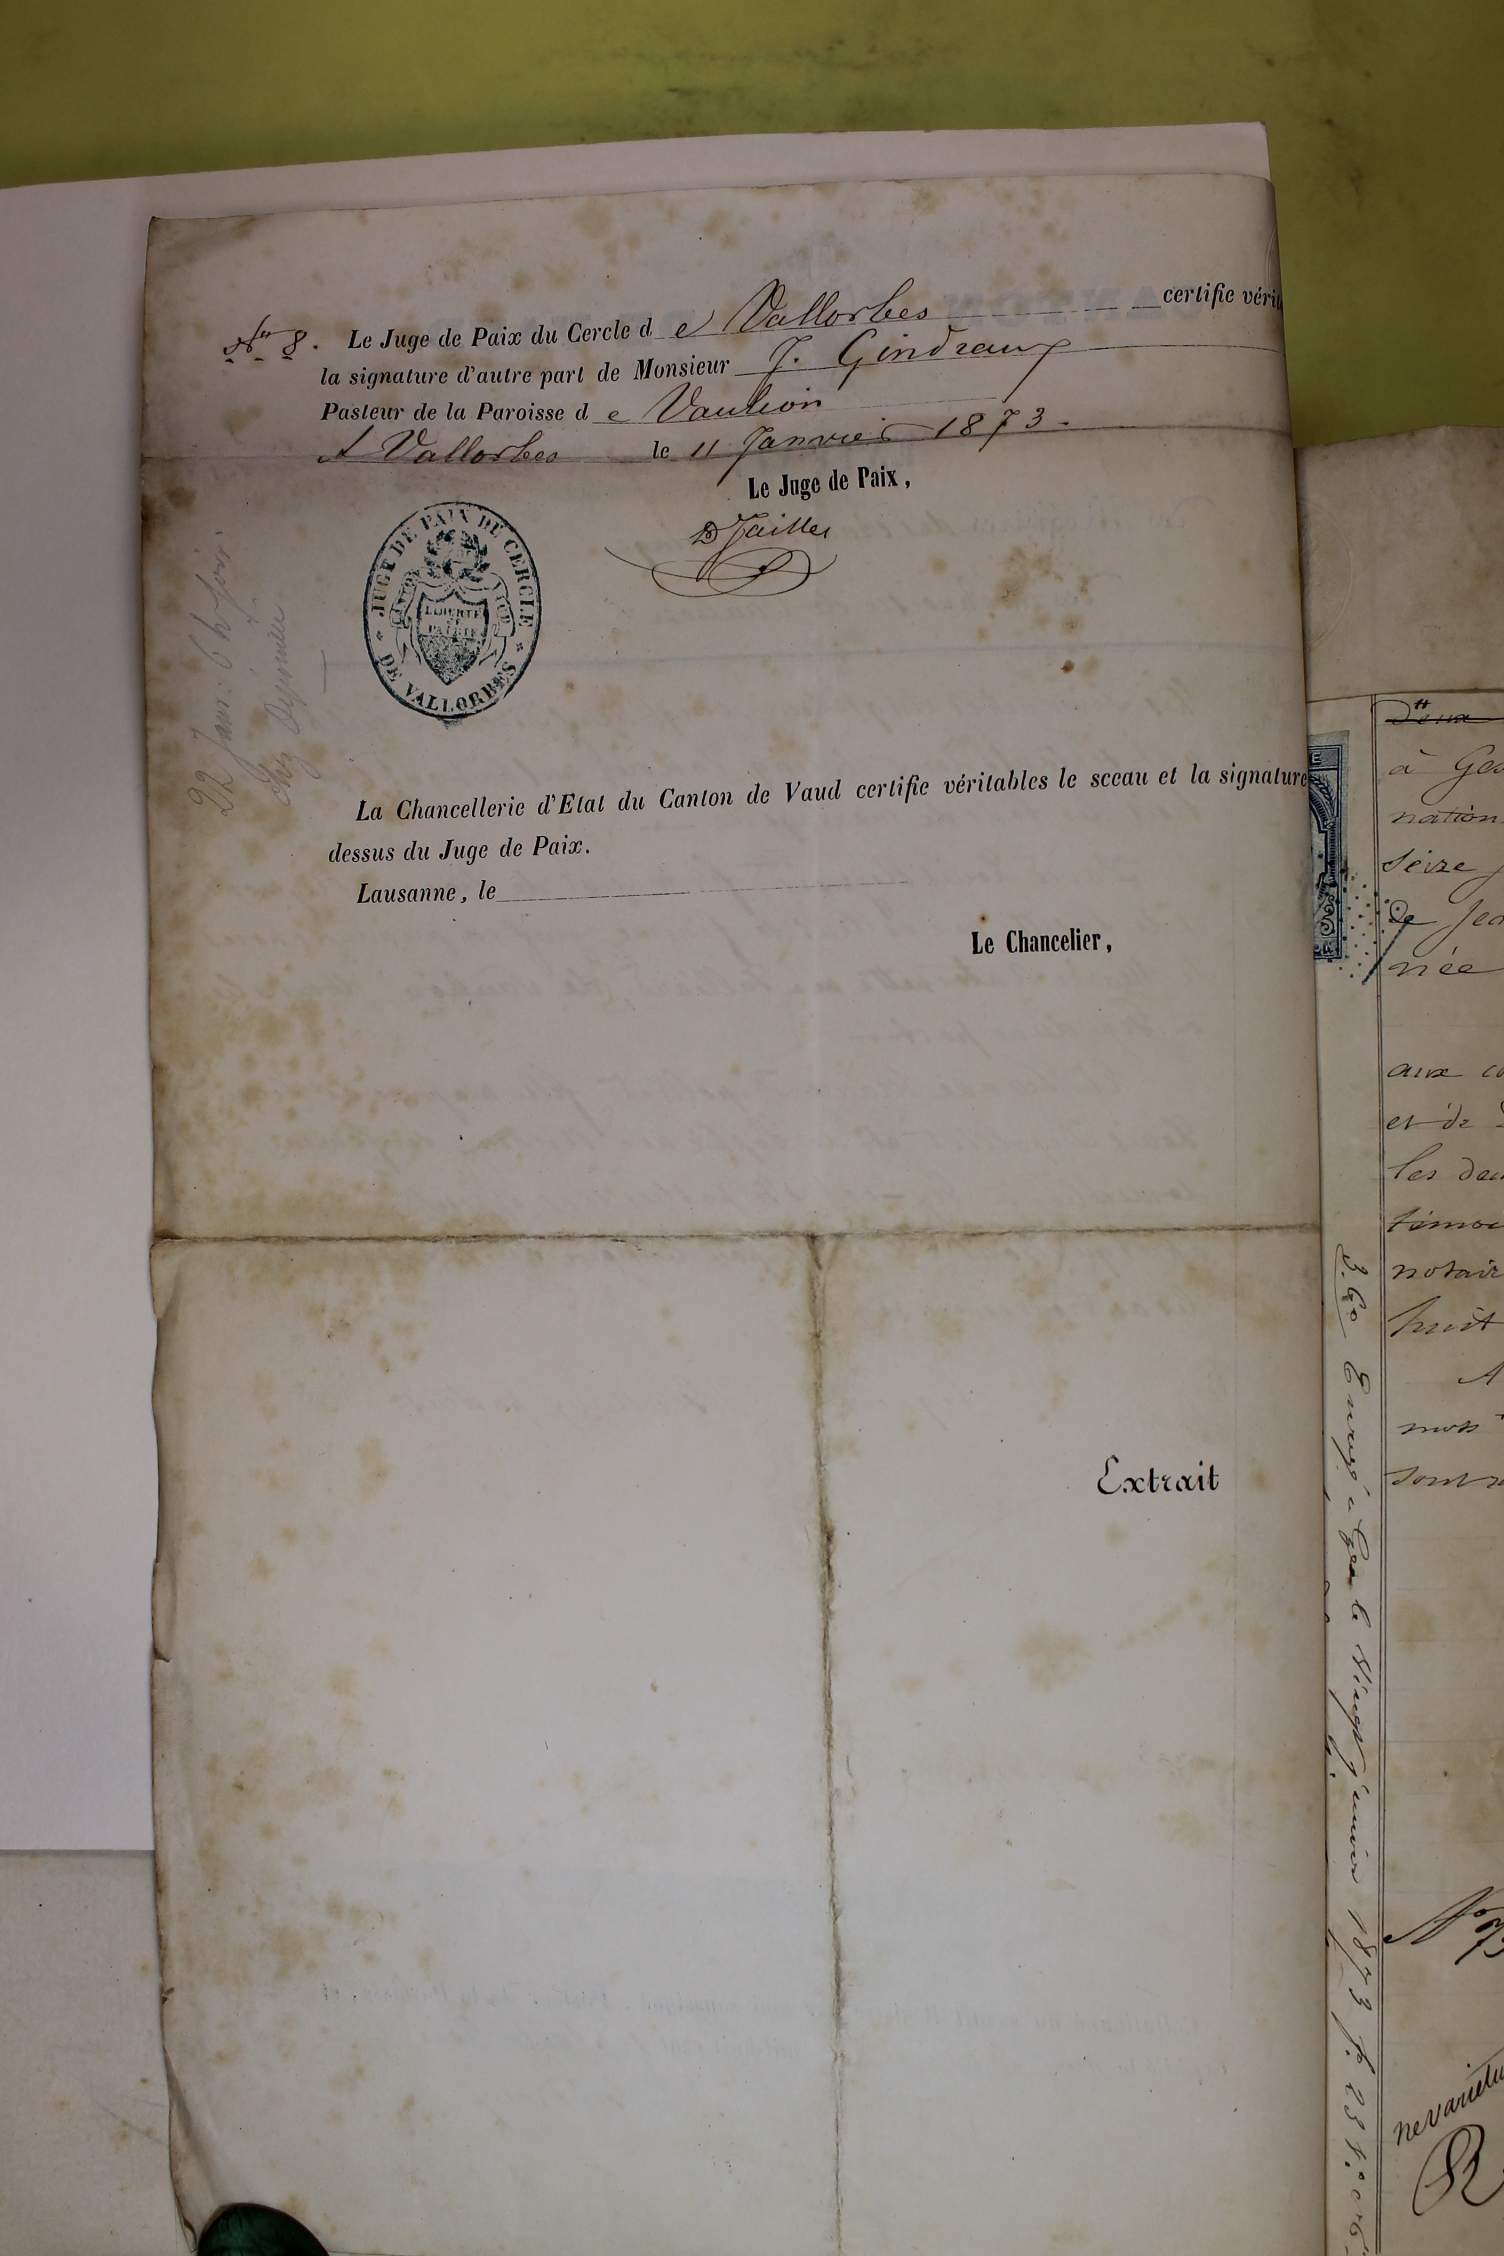 No 8. Le Juge de Paix du Cercle d e Vallorbes certifie vérit
la signature d'autre part de Monsieur J. Gindraux
Pasteur de la Paroisse d e Vaulion
A Vallorbes le 11 Janvier 1873.
Le Juge de Paix,
JUGE DE PAIX DU CERCLE
CANTON VAUD
LIBERTÉ
ET
PATRIE
DE VALLORBES
22 Janv: 6 h soir
chez
La Chancellerie d'Etat du Canton de Vaud certifie véritables le sceau et la signature
dessus du Juge de Paix.
Lausanne, le
Le Chancelier,
Extrait
deux
à Ge
nation
seize
de Jea
née
aux co
et de
les deu
témoi
notair
huit
A
mots
sont n
No 73
ne varietu
3.60 Enregé à Gex le vingt janvier 1873 fo 23